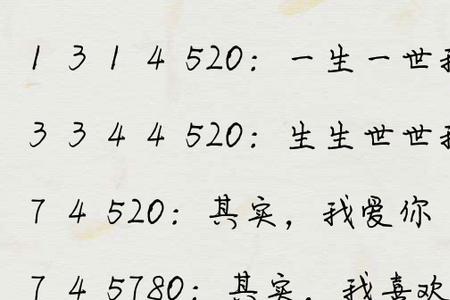 1 3 1 4 520：一生一世我
3 3 4 4 520：生生世世我
7 4 520：其实，我爱你
7 4 5780：其实，我喜欢